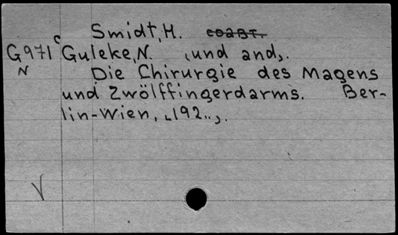 Smidt, H. coавт.
G971 c Guleke, N. (und and.).
N Die Chirurgie des Magens
und Zwölffingerdarms. Ber-
lin-Wien, „192.., .
V